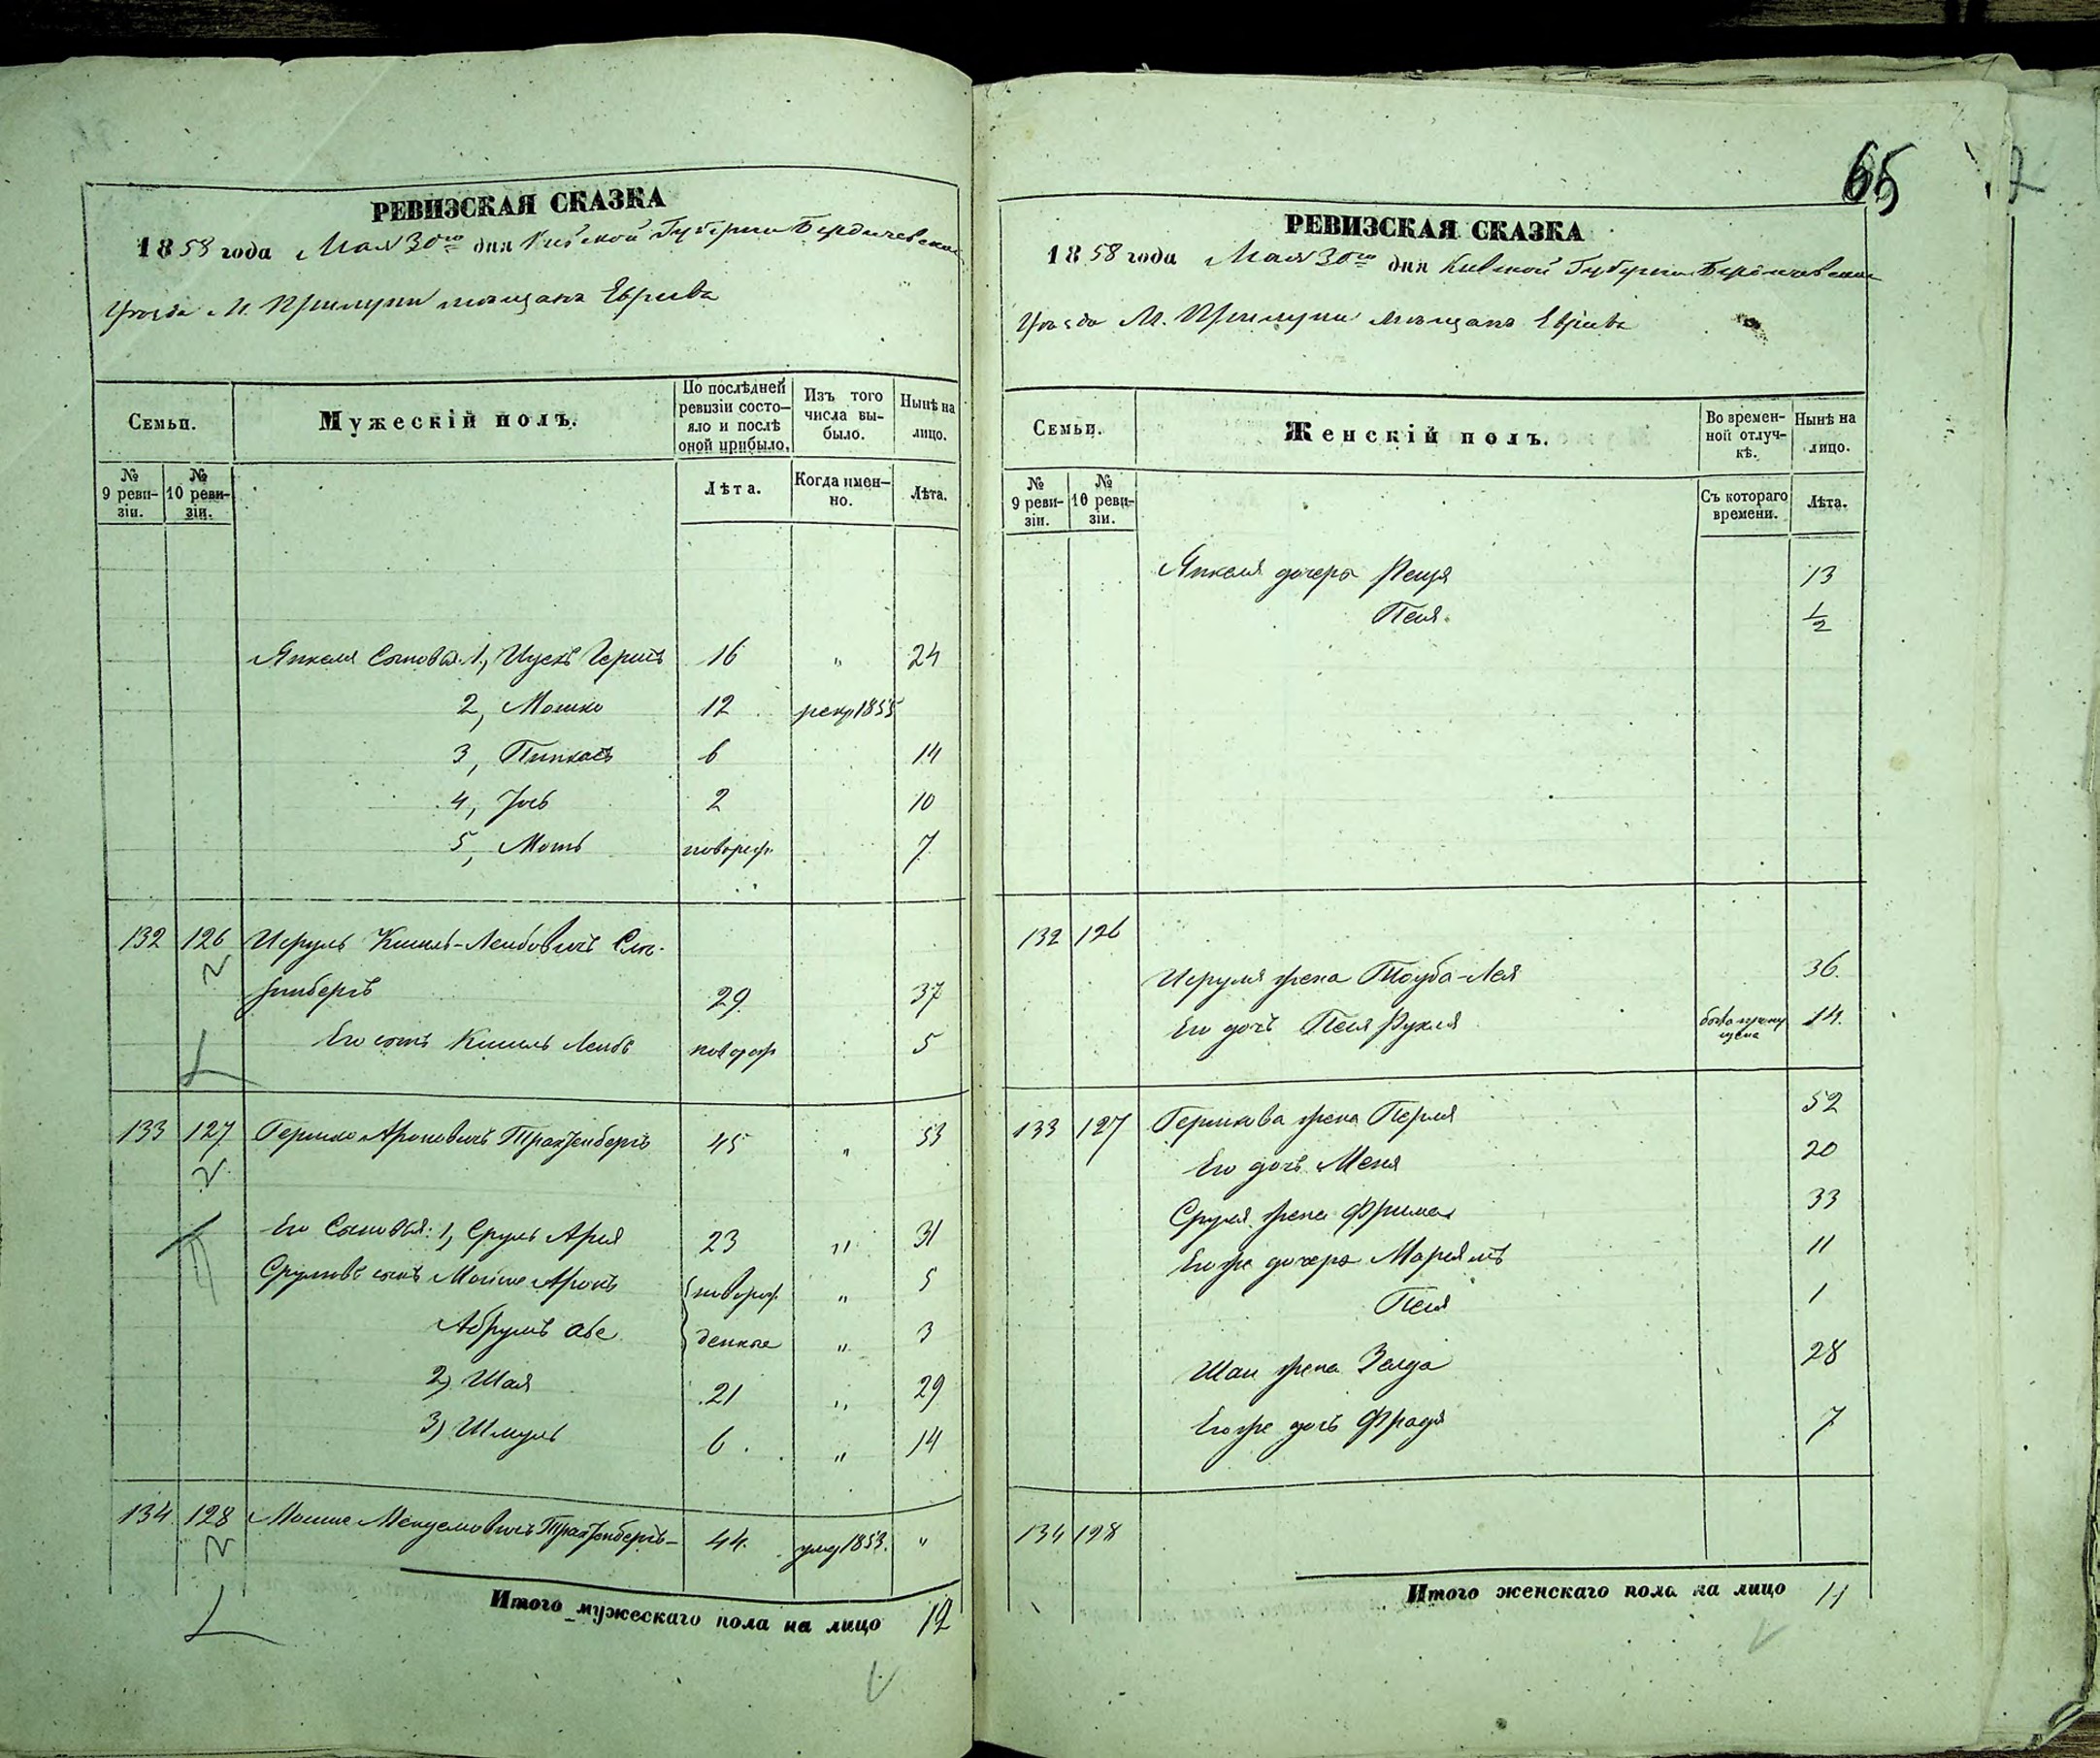 65
РЕВИЗСКАЯ СКАЗКА
1858 года Мая 30го дня Киевской Губернии Бердичевскаго
Уѣзда М. Прилуки мѣщанъ Евреевъ
Семьи.
Мужескій полъ.
По послѣдней ревизіи состояло и послѣ оной прибыло.
Изъ того числа выбыло.
Нынѣ на лицо.
№ 9 ревизіи.
№ 10 ревизіи.
Лѣта.
Когда именно.
Лѣта.
Янкеля Сыновья: 1, Ицекъ Гершъ 16 " 24
2, Мошко 12 рекр 1855
3, Пинкасъ 6 14
4, Iось 2 10
5, Моть новорож 7
132 126 Исруль Кисиль-Лейбовичъ
29 37
Его сынъ Кисиль Лейбъ новорож 5
133 127 Гершко Ароновичъ Трахтенбергъ 45 " 53
Его Сыновья: 1, Сруль Ария 23 " 31
Срулевъ сынъ Мойше Аронъ новорож " 5
Абрумъ Абе денные " 3
2) Шая 21 " 29
3) Шмуль 6 " 14
134 128 Мошко Менделовичъ Трахтенбергъ 44 умер 1853. "
Итого мужескаго пола на лицо 12
РЕВИЗСКАЯ СКАЗКА
1858 года Мая 30го дня Киевской Губернии Бердичевскаго
Уѣзда М. Прилуки мѣщанъ Евреевъ
Семьи.
Женскій полъ.
Во временной отлучкѣ.
Нынѣ на лицо.
№ 9 ревизіи.
№ 10 ревизіи.
Съ котораго времени.
Лѣта.
Янкеля дочери 13
Песя 1/2
132 126
Исруля жена Тауба-Лея 36
Его дочь Песя Рухля была пропущена 14.
133 127 Гершкова жена Перля 52
Его дочь Меня 20
Сруля жена Фрима 33
Его же дочери Мариямъ 11
Песя 1
Шаи жена Зелда 28
Его же дочь Фрадя 7
134 128
Итого женскаго пола на лицо 11